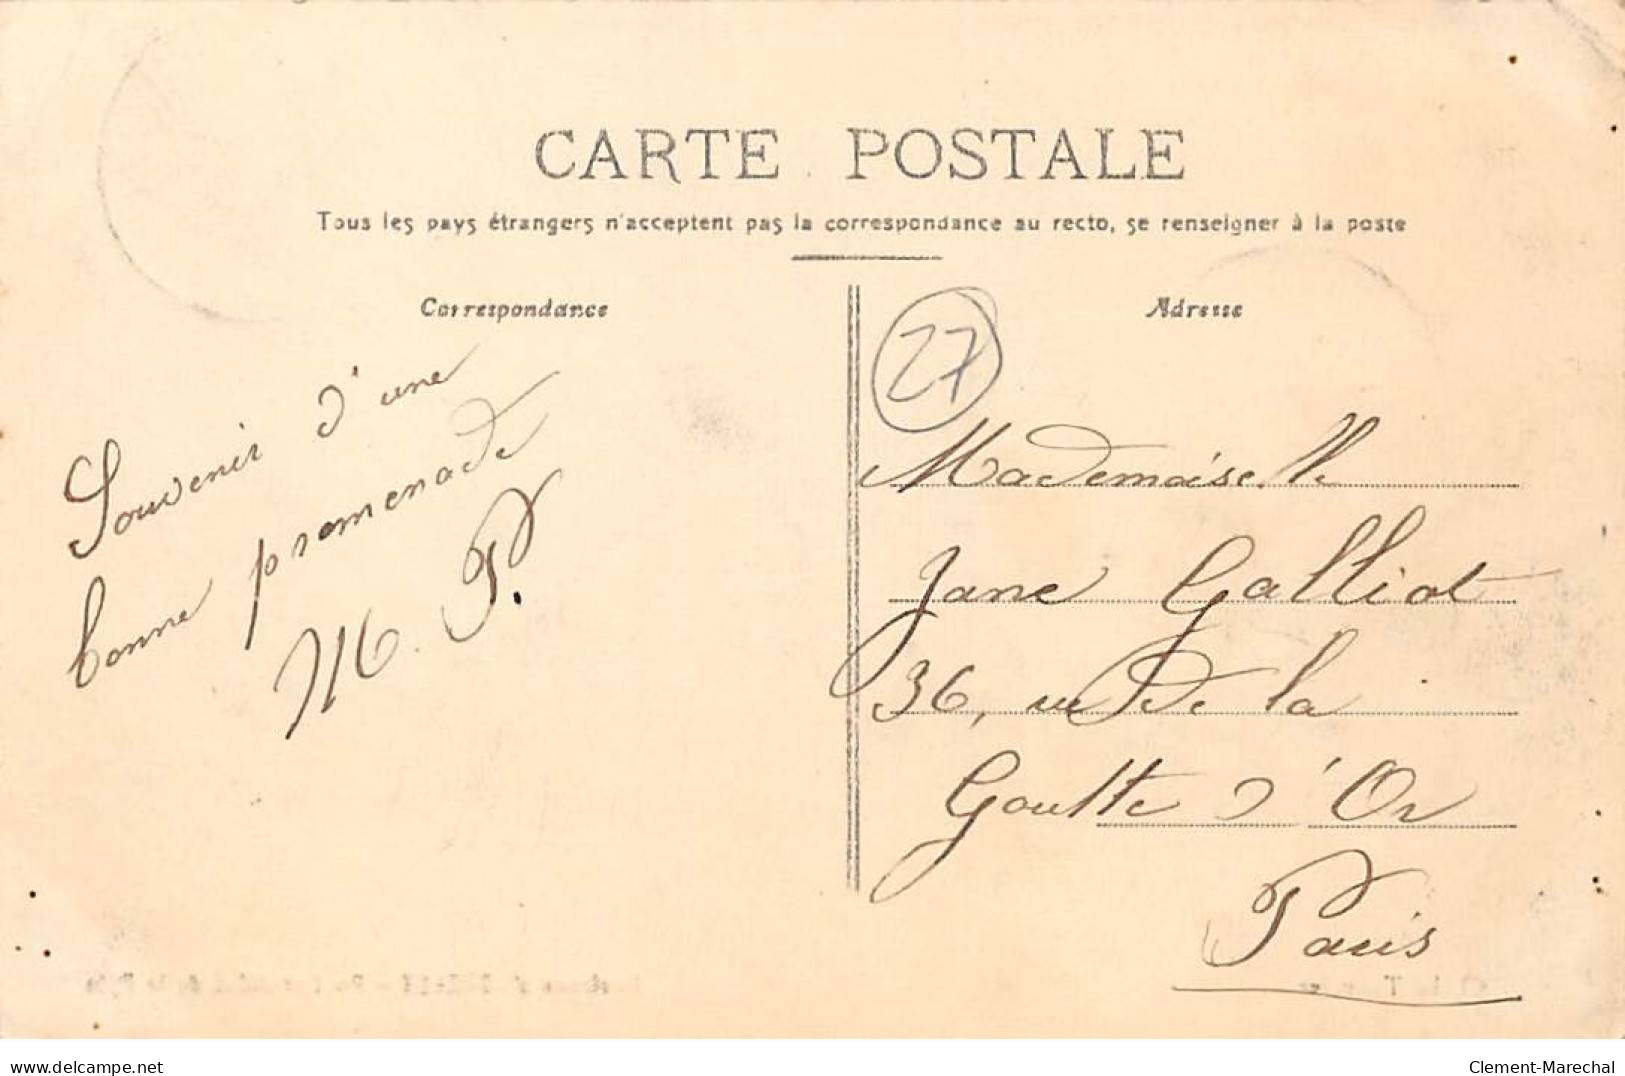 CARTE POSTALE
Tous les pays étrangers n'acceptent pas la correspondance au recto, se renseigner à la poste
Correspondance
Adresse
27
Souvenir d'une
bonne promenade
M. P.
Mademoiselle
Jane Galliot
36, rue de la
Goutte d'Or
Paris
www.delcampe.net
Clement-Marechal